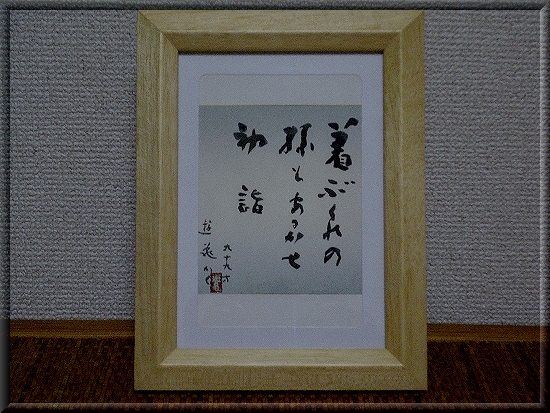 着ぶくれの
孫もあるかせ
初詣
九十九才